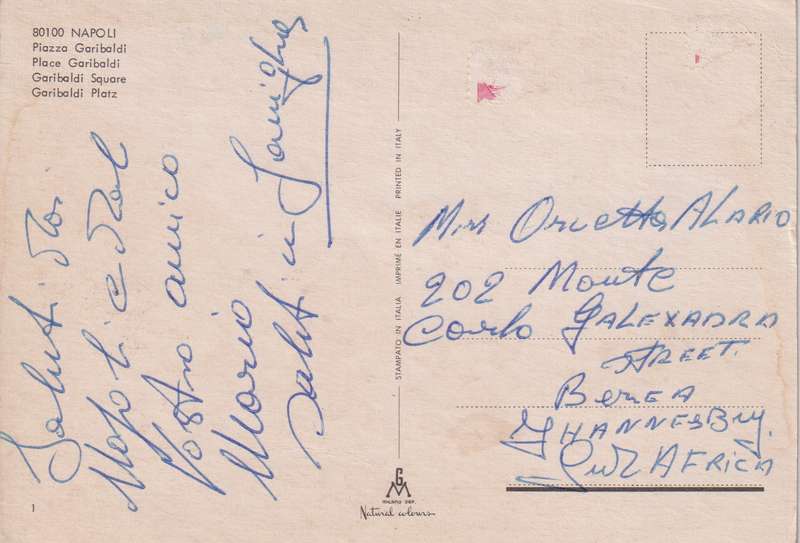 80100 NAPOLI
Piazza Garibaldi
Place Garibaldi
Garibaldi Square
Garibaldi Platz
Saluti da
Napoli e dal
Vostro amico
Mario
Saluti in Famiglia
STAMPATO IN ITALIA IMPRIMÉ EN ITALIE PRINTED IN ITALY
Miss Orietta ALARIO
202 Monte
Carlo GALEXADRA
STREET.
BereA
JHANNESBUJ.
Sud AFRICA
GM
MILANO
Natural colours
1